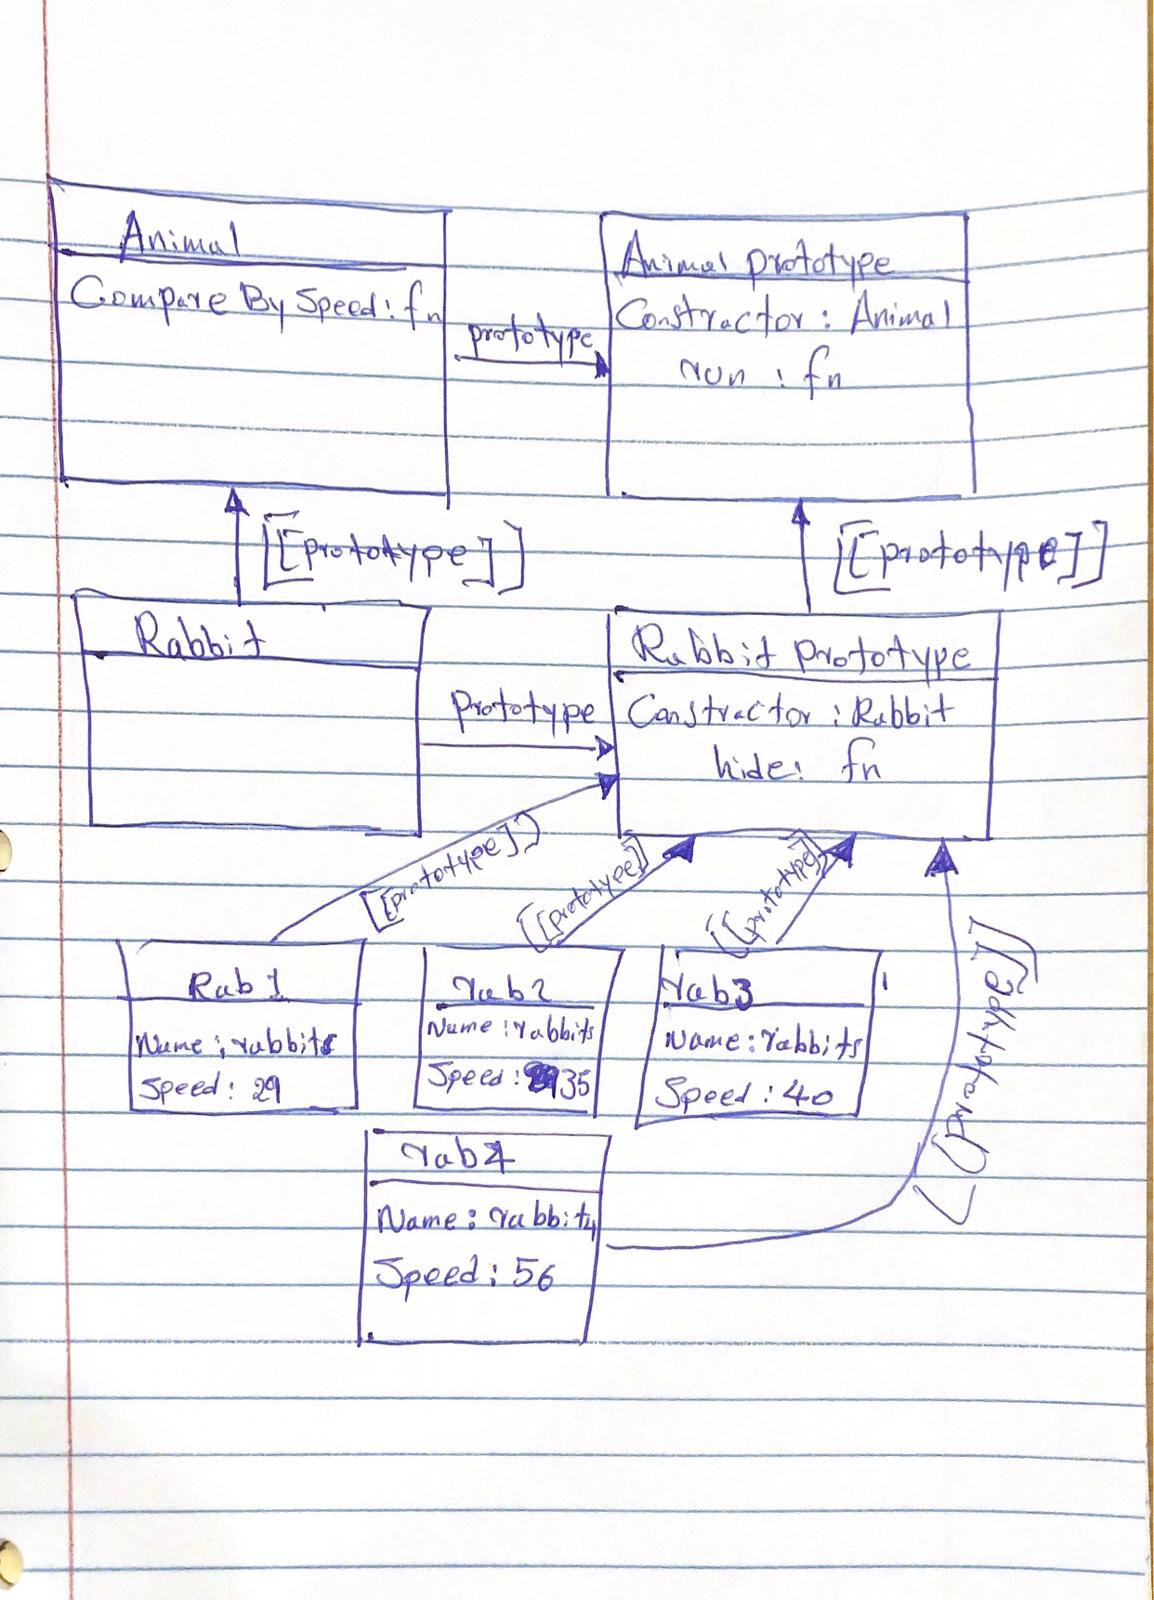 Animal
Compare By Speed: fn
prototype
Animal prototype
Constractor : Animal
run : fn
[[prototype]]
[[prototype]]
Rabbit
Prototype
Rabbit prototype
Constractor : Rabbit
hide: fn
[[prototype]]
[[prototype]]
[[prototype]]
[[prototype]]
Rab1
Name: rabbits
Speed: 29
rab2
Name: rabbits
Speed: 35
rab3
Name: rabbits
Speed: 40
rab4
Name: rabbit4
Speed: 56